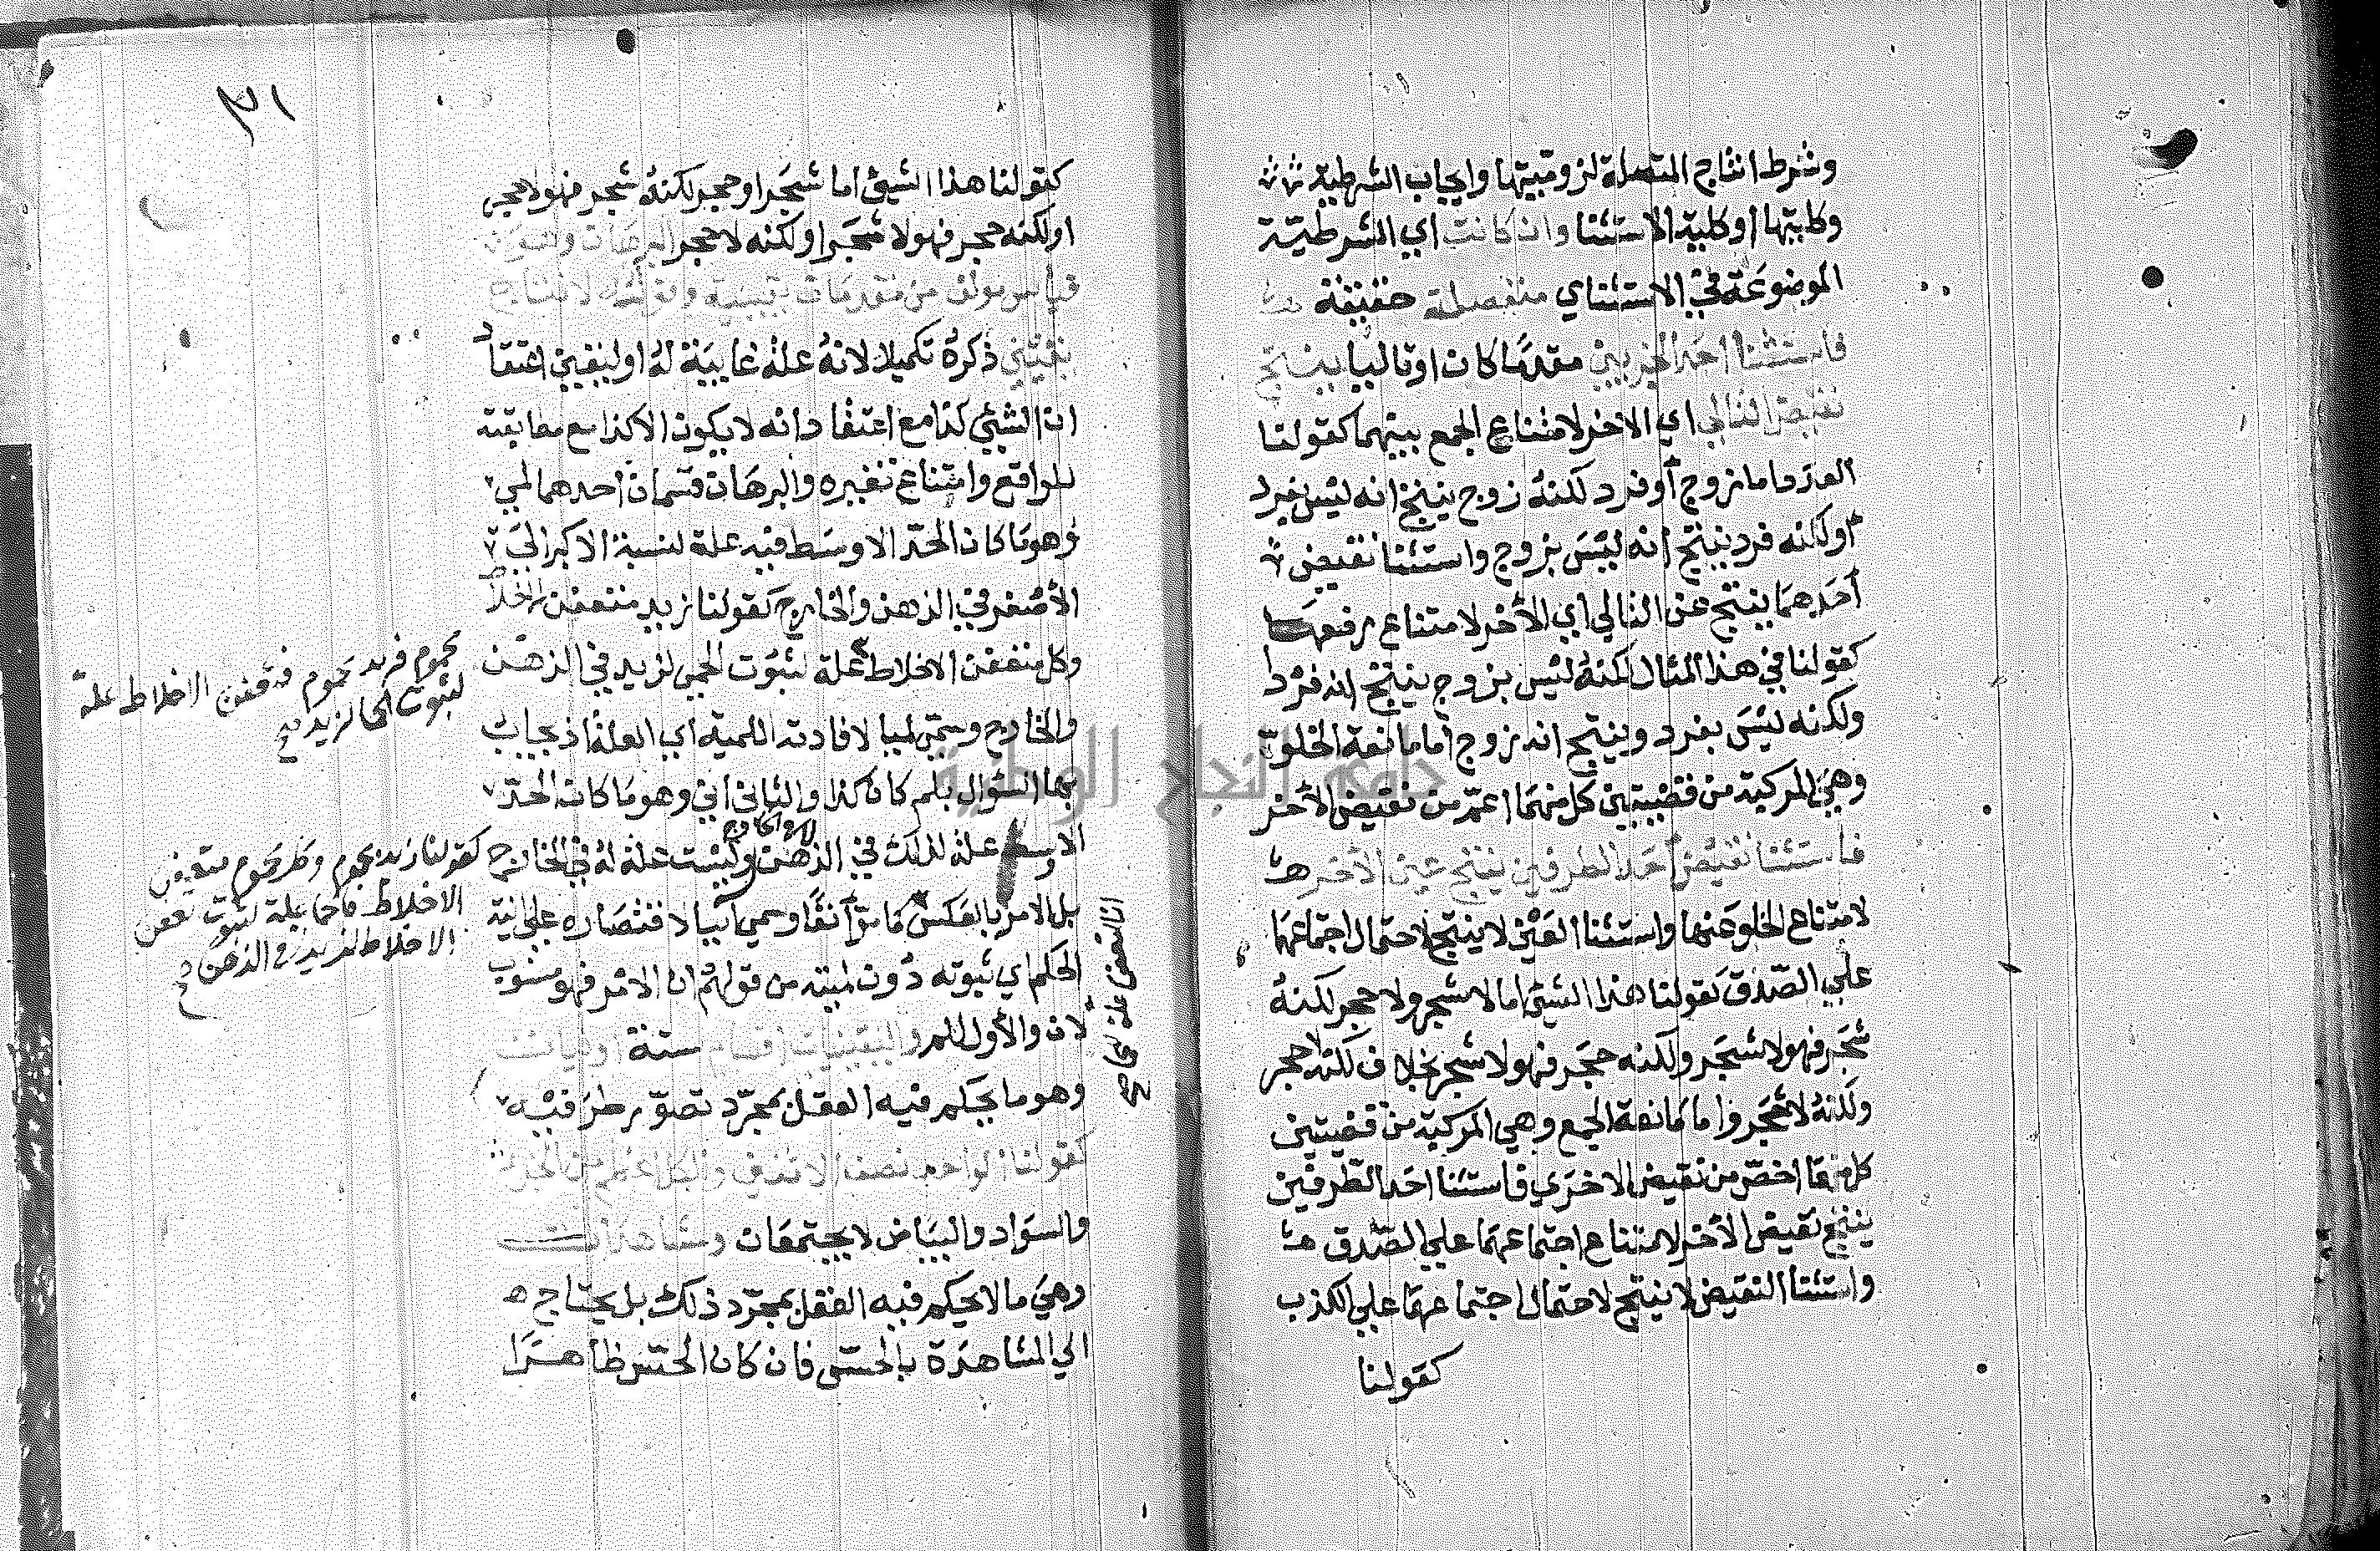 وشرط انتاج المتصلة لزوميتها وايجاب الشرطية
وكليتها او كلية الاستثنا وان كانت اي الشرطية
الموضوعة في الاستثناي منفصلة حقيقة
فاستثنا احد الجزيين مقدما كان او تاليا ينتج
نقيض التالي اي الاخر لامتناع الجمع بينهما كقولنا
العدد اما زوج أو فرد لكنه زوج ينتج انه ليس بفرد
أو لكنه فرد ينتج أنه ليس بزوج واستثنا نقيض
أحدهما ينتج عين التالي اي الأخر لامتناع رفعهما
كقولنا في هذا المثال لكنه ليس بزوج ينتج انه فرد
ولكنه ليس بفرد وينتج انه زوج أما مانعة الخلو
وهي المركبة من قضيتين كل منهما اعم من نقيض الأخر
فاستثنا نقيض أحد الطرفين ينتج عين الأخر
لامتناع الخلو عنها واستثنا العين لا ينتج لاحتمال اجتماعهما
علي الصدق كقولنا هذا الشيئ اما لا شجر ولا حجر لكنه
شجر فهو لا شجر ولكنه حجر فهو لا شجر بخلاف لكنه لا حجر
ولكنه لا شجر واما مانعة الجمع وهي المركبة من قضيتين
كل منهما اخص من نقيض الاخري فاستثنا احد الطرفين
ينتج نقيض الأخر لامتناع اجتماعهما علي الصدق
واستثنا النقيض لا ينتج لاحتمال اجتماعهما علي الكذب
كقولنا
٣١
كقولنا هذا الشيئ اما شجر او حجر لكنه شجر فهو لا حجر
او لكنه حجر فهو لا شجر او لكنه لا حجر البرهان وهو
قياس مولف من مقدمات يقينية لانتاج
يقيني ذكره تكميلا لانه علة غايية له او ليقيني اعتقاد
ان الشيئ كذا مع اعتقاد انه لا يكون الا كذا مع مطابقته
للواقع وامتناع تغيره والبرهان قسمان أحدهما لمي
وهو ما كان الحد الاوسط فيه علة لنسبة الاكبر الي
الأصغر في الذهن والخارج كقولنا زيد متعفن الاخلاط
وكل متعفن الاخلاط علة لثبوت الحمي لزيد في الذهن
والخارج وسمي لميا لافادته اللمية اي العلة اذ يجاب
بها السؤال بلم كان كذا والثاني اني وهو ما كان الحد
الاوسط علة لذلك في الذهن وليست علة له في الخارج
بل الامر بالعكس كما مر آنفا وسمي آنيا لاقتصاره علي انية
الحكم اي ثبوته دون لميته من قولهم ان الامر فهو منسوب
لان والأول للم واليقينيات اقسام ستة اوليات
وهو ما يحكم فيه العقل بمجرد تصور طرفيه
كقولنا الواحد نصف الاثنين والكل اعظم من الجزء
والسواد والبياض لا يجتمعان ومشاهدات
وهي ما لا يحكم فيه العقل بمجرد ذلك بل يحتاج
الي المشاهدة بالحس فان كان الحس ظاهرا
محموم فزيد محموم فتعفن الاخلاط علة
لثبوت الحما لزيد صح
كقولنا زيد محموم وكل محموم متعفن
الاخلاط فالحما علة لثبوت تعفن
الاخلاط لزيد في الذهن
جامعة النجاح الوطنية